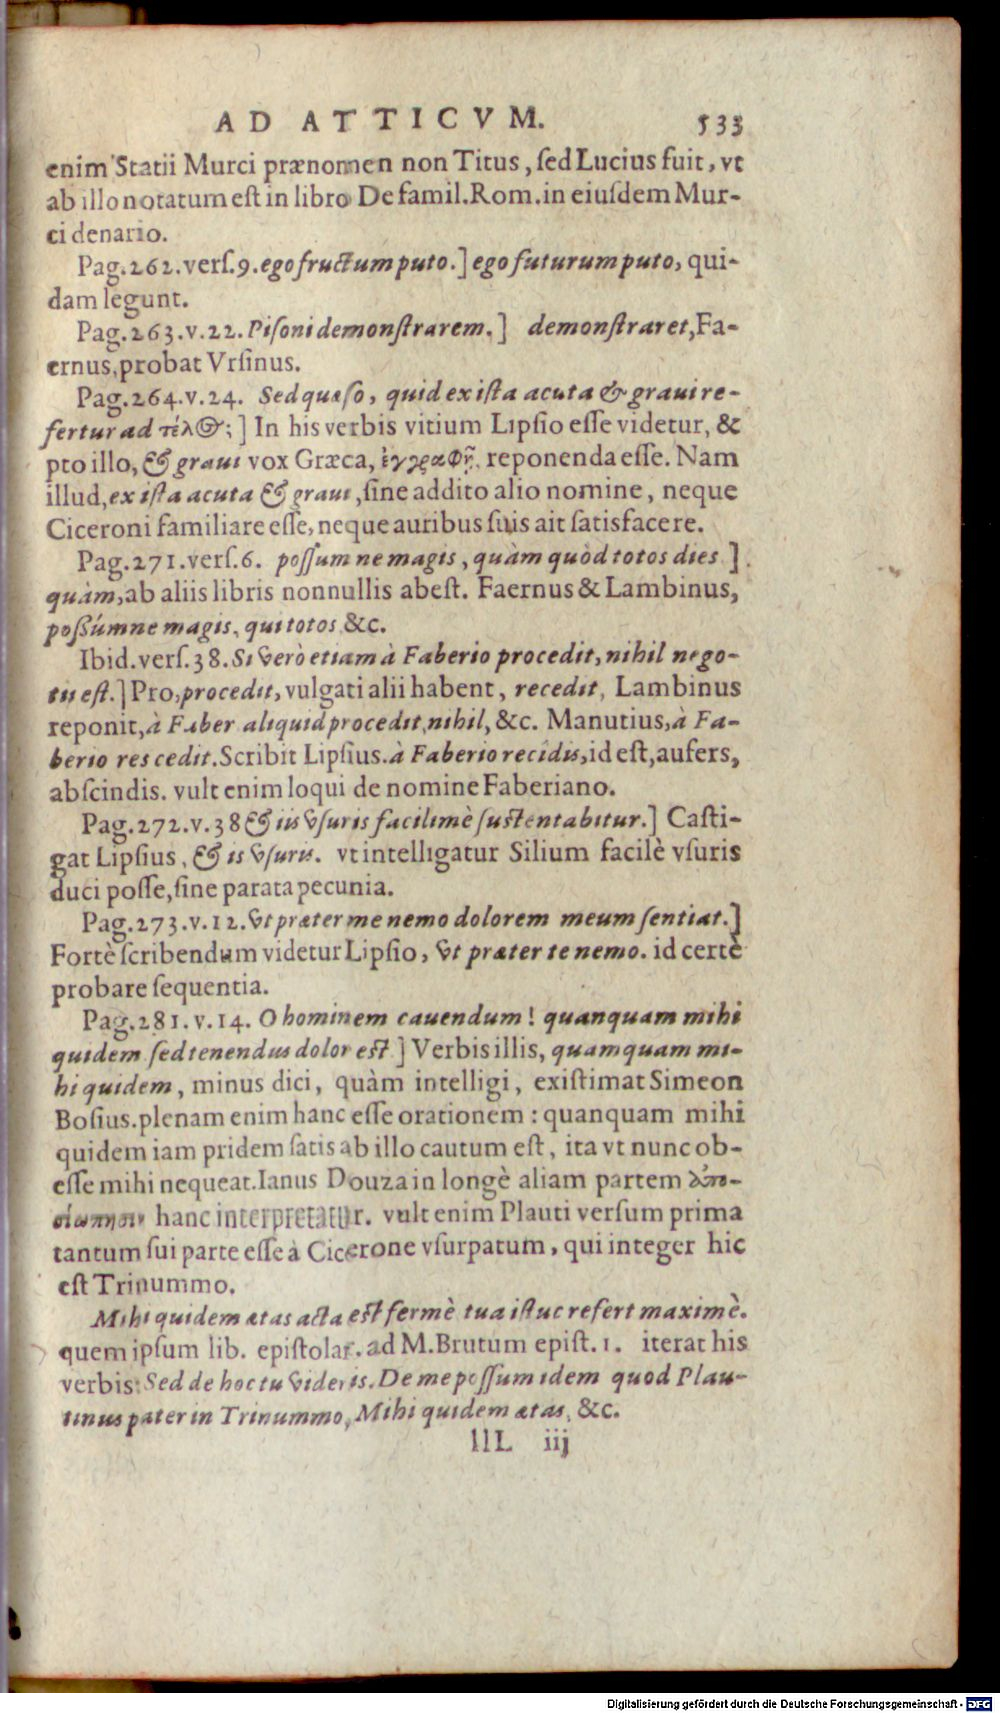 AD ATTICVM. 533
enim Statii Murci prænomen non Titus, ſed Lucius fuit, vt
ab illo notatum eſt in libro De famil. Rom. in eiuſdem Mur-
ci denario.
Pag. 262. verſ. 9. ego fructum puto.] ego futurum puto, qui-
dam legunt.
Pag. 263. v. 22. Piſoni demonſtrarem.] demonſtraret, Fa-
ernus, probat Vrſinus.
Pag. 264. v. 24. Sed quæſo, quid ex iſta acuta & graui re-
fertur ad τέλος;] In his verbis vitium Lipſio eſſe videtur, &
pro illo, & graui vox Græca, ἐγγραφῇ, reponenda eſſe. Nam
illud, ex iſta acuta & graui, ſine addito alio nomine, neque
Ciceroni familiare eſſe, neque auribus ſuis ait ſatisfacere.
Pag. 271. verſ. 6. poſſum ne magis, quàm quòd totos dies]
quàm, ab aliis libris nonnullis abeſt. Faernus & Lambinus,
poßúmne magis, qui totos &c.
Ibid. verſ. 38. Si verò etiam à Faberio procedit, nihil nego-
tii eſt.] Pro, procedit, vulgati alii habent, recedit, Lambinus
reponit, à Faber aliquid procedit, nihil, &c. Manutius, à Fa-
berio res cedit. Scribit Lipſius. à Faberio recidis, id eſt, aufers,
abſcindis. vult enim loqui de nomine Faberiano.
Pag. 272. v. 38 & iis vſuris facilimè ſuſtentabitur.] Caſti-
gat Lipſius, & is vſuris. vt intelligatur Silium facilè vſuris
duci poſſe, ſine parata pecunia.
Pag. 273. v. 12. vt præter me nemo dolorem meum ſentiat.]
Fortè ſcribendum videtur Lipſio, vt præter te nemo. id certè
probare ſequentia.
Pag. 281. v. 14. O hominem cauendum! quanquam mihi
quidem ſed tenendus dolor eſt] Verbis illis, quamquam mi-
hi quidem, minus dici, quàm intelligi, exiſtimat Simeon
Boſius. plenam enim hanc eſſe orationem: quanquam mihi
quidem iam pridem ſatis ab illo cautum eſt, ita vt nunc ob-
eſſe mihi nequeat. Ianus Douza in longè aliam partem ἀπο-
σιώπησιν hanc interpretatur. vult enim Plauti verſum prima
tantum ſui parte eſſe à Cicerone vſurpatum, qui integer hic
eſt Trinummo.
Mihi quidem ætas acta eſt fermè tua iſtuc refert maximè.
quem ipſum lib. epiſtolar. ad M. Brutum epiſt. 1. iterat his
verbis: Sed de hoc tu videris. De me poſſum idem quod Plau-
tinus pater in Trinummo, Mihi quidem ætas, &c.
lIL iij
Digitalisierung gefördert durch die Deutsche Forschungsgemeinschaft - DFG